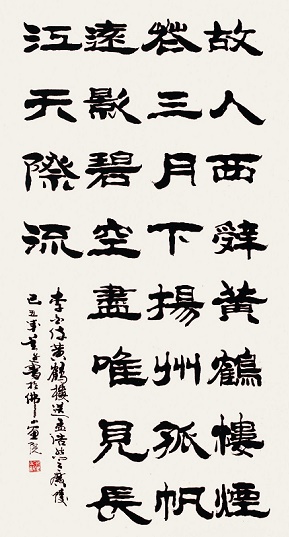 故人西辭黃鶴樓煙
花三月下揚州孤帆
遠影碧空盡唯見長
江天際流
李白詩黃鶴樓送孟浩然之廣陵
己丑年書於佛山畫院